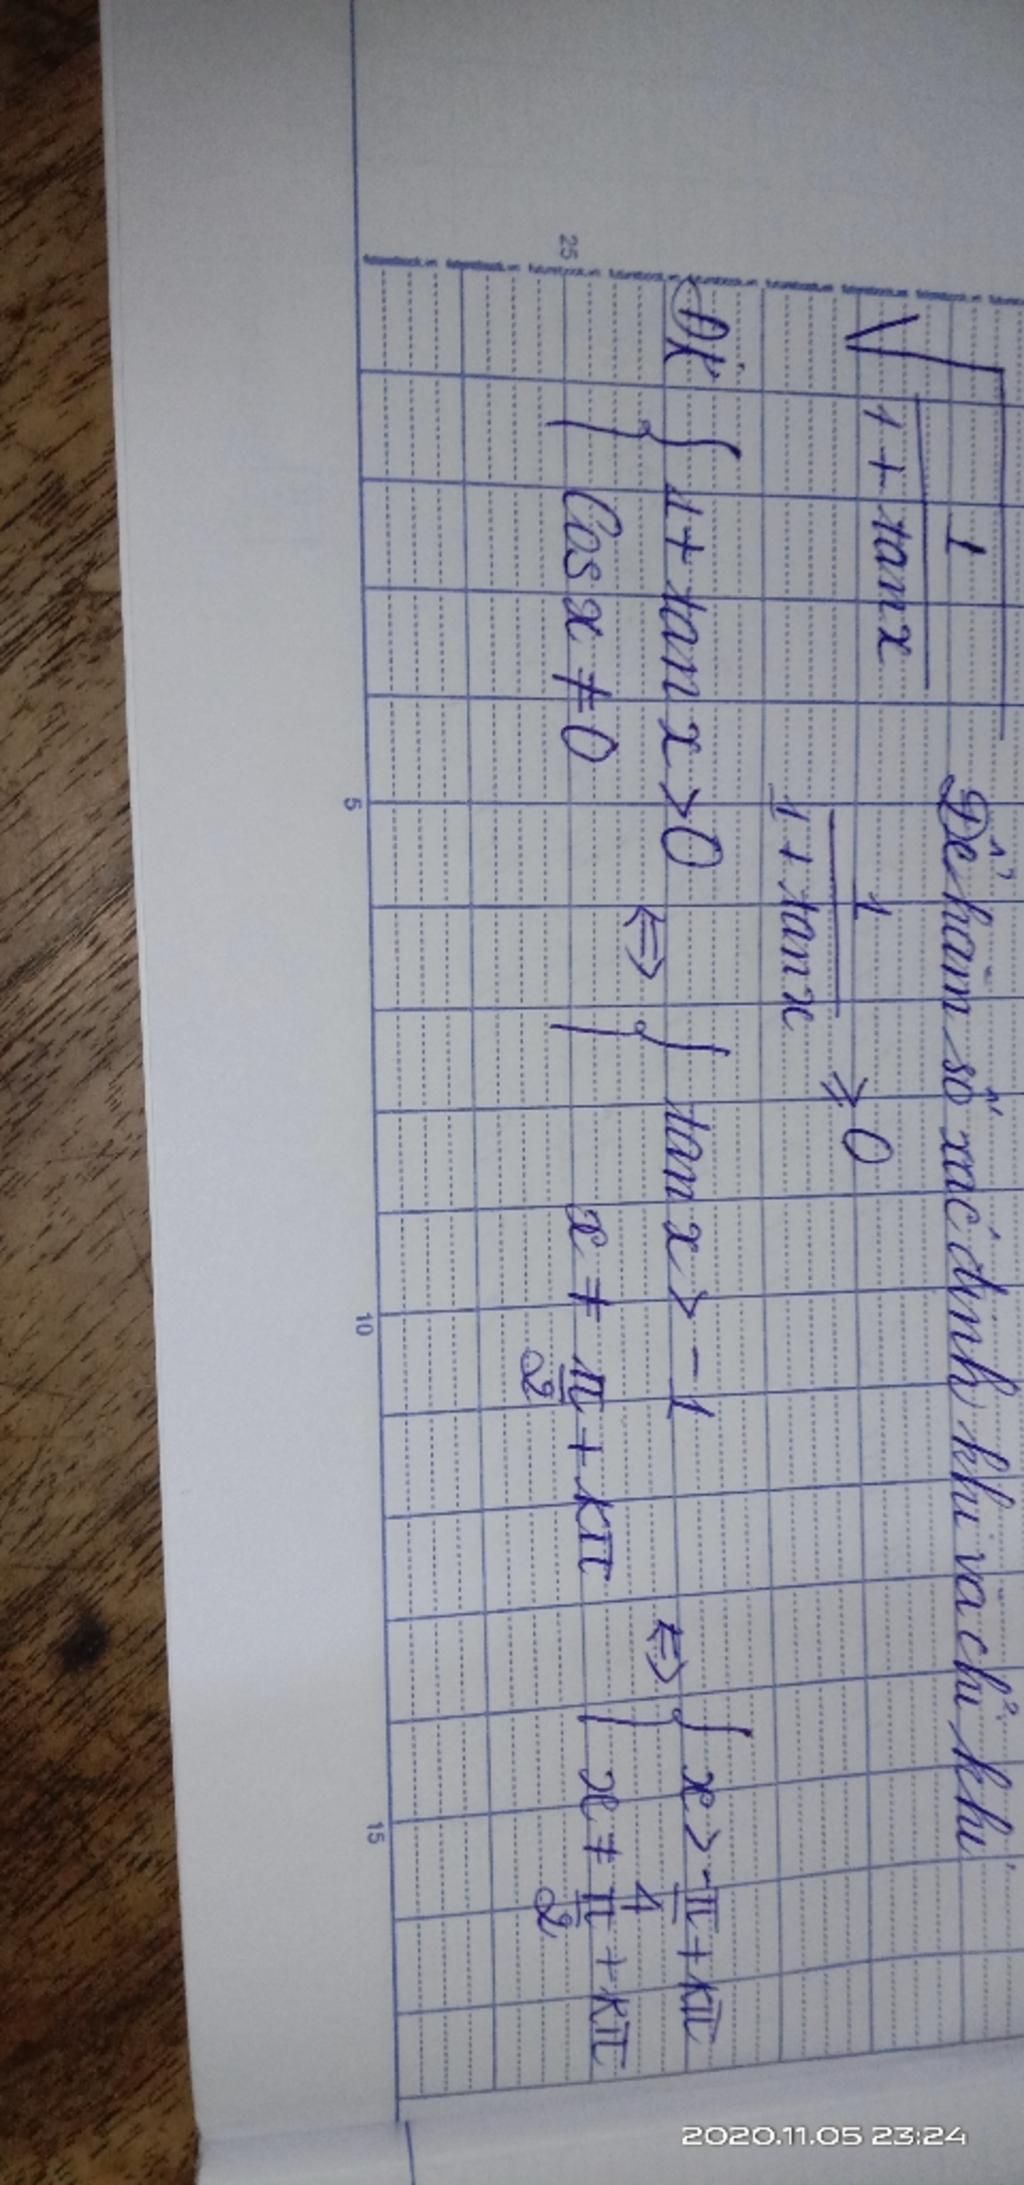 √ 1 / 1 + tan x
Để hàm số xác định khi và chỉ khi
1 / 1 + tan x ⩾ 0
Đk: { 1 + tan x > 0 ⇔ { tan x > - 1 ⇔ { x > -π/4 + kπ
cos x ≠ 0 x ≠ π/2 + kπ x ≠ π/2 + kπ
25
5 10 15
2020.11.05 23:24